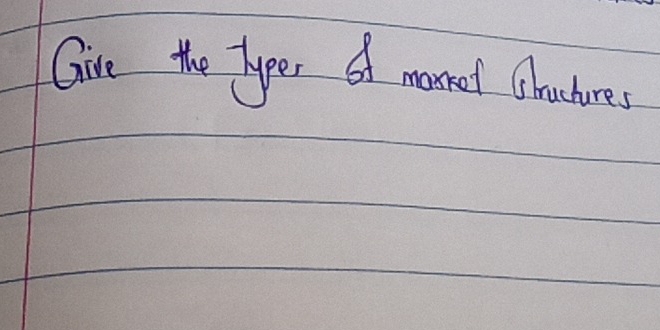 Give the types of market structures